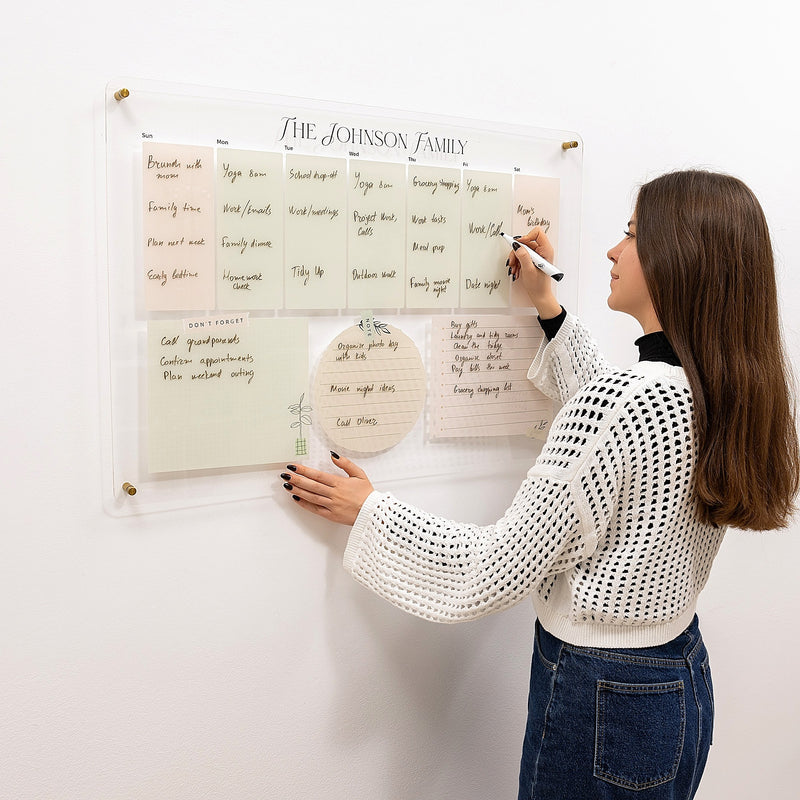 THE JOHNSON FAMILY
Sun
Brunch with
mom
Family time
Plan next week
Early bedtime
Mon
Yoga 8am
Work/Emails
Family dinner
Homework
check
Tue
School drop-off
Work/meetings
Tidy Up
Wed
Yoga 8am
Project Work,
Calls
Outdoors walk
Thu
Grocery shopping
Work tasks
Meal prep
Family movie
night
Fri
Yoga 8am
Work/Call
Date night
Sat
Mom's
birthday
DON'T FORGET
Call grandparents
Confirm appointments
Plan weekend outing
NOTE
Organise photo day
with kids
Movie night ideas
Call Oliver
Buy gifts
Laundry and tidy rooms
Clean the fridge
Organise closet
Pay bills this week
Grocery shopping list